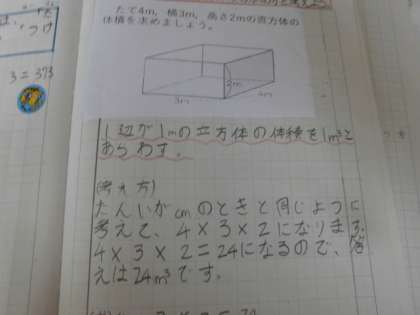 たて4m, 横3m, 高さ2mの直方体の
体積を求めましょう。
2m
3m
4m
3=373
1辺が1mの立方体の体積を1m³と
あらわす。
(考え方)
たんいがcmのときと同じように
考えて、4×3×2になります。
4×3×2=24になるので、答
えは24m³です。